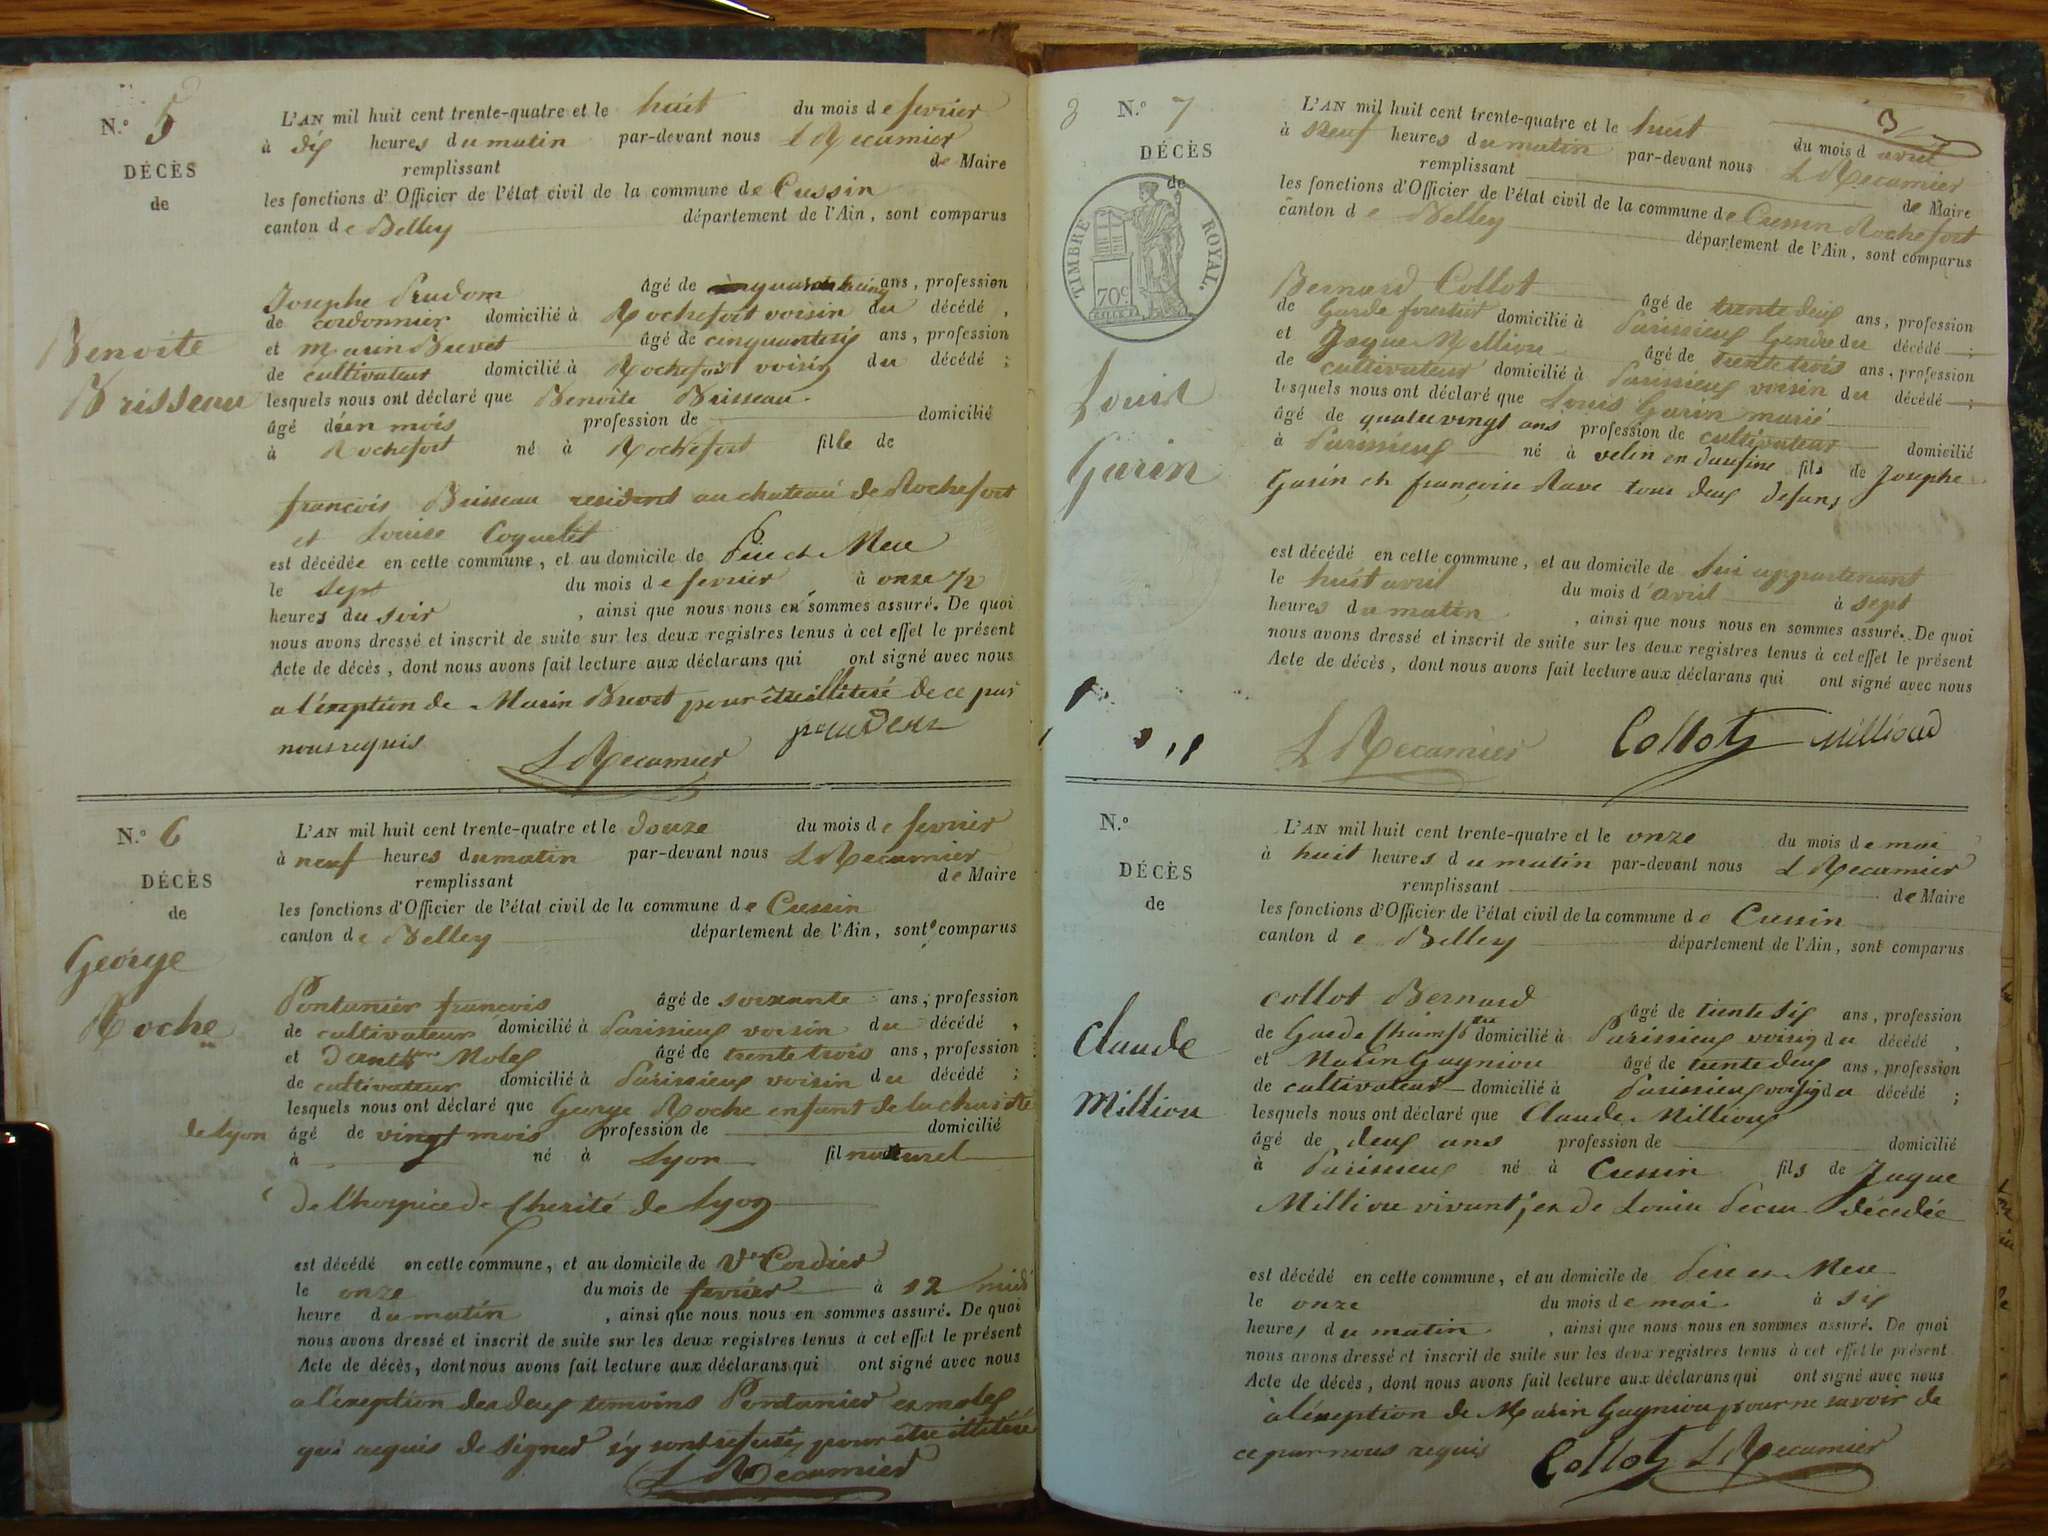 N.º 5
DÉCÈS
de
Benoite
Brisseau
L'AN mil huit cent trente-quatre et le huit du mois de fevrier
à dix heures du matin par-devant nous L Recamier
remplissant de Maire
les fonctions d'Officier de l'état civil de la commune de Cressin
canton de Belley département de l'Ain, sont comparus
Josephe Prudom âgé de ans, profession
de cordonnier domicilié à Rochefort voisin du décédé,
et Marin Buvet âgé de cinquantesix ans, profession
de cultivateur domicilié à Rochefort voisin du décédé;
lesquels nous ont déclaré que Benoite Brisseau
âgé d'un mois profession de domicilié
à Rochefort né à Rochefort fille de
francois Brisseau resident au chateau de Rochefort
et Louise Coquelet
est décédée en cette commune, et au domicile de Père et Mere
le sept du mois de fevrier à onze ½
heures du soir, ainsi que nous nous en sommes assuré. De quoi
nous avons dressé et inscrit de suite sur les deux registres tenus à cet effet le présent
Acte de décès, dont nous avons fait lecture aux déclarans qui ont signé avec nous
a l'éxeption de Marin Buvet pour être illiteré de ce par
nous requis L Recamier
N.º 6
DÉCÈS
de
George
Roche
L'AN mil huit cent trente-quatre et le douze du mois de fevrier
à neuf heures du matin par-devant nous L Recamier
remplissant de Maire
les fonctions d'Officier de l'état civil de la commune de Cressin
canton de Belley département de l'Ain, sont comparus
Pontanier francois âgé de soixante ans, profession
de cultivateur domicilié à Parissieux voisin du décédé,
et Molex âgé de trente trois ans, profession
de cultivateur domicilié à Parissieux voisin du décédé;
lesquels nous ont déclaré que George Roche enfant de la charité
de Lyon âgé de vingt mois profession de domicilié
à né à Lyon fil naturel
De l'hospice de Cherité de Lyon
est décédé en cette commune, et au domicile de Vve Cordier
le onze du mois de fevrier à 12 midi
heure du matin, ainsi que nous nous en sommes assuré. De quoi
nous avons dressé et inscrit de suite sur les deux registres tenus à cet effet le présent
Acte de décès, dont nous avons fait lecture aux déclarans qui ont signé avec nous
a l'éxeption des deux temoins Pontanier et molex
qui requis de signer s'y sont refusés pour être illiteré
L Recamier
3
N.º 7
DÉCÈS
de
TIMBRE ROYAL.
70c
Louis
Garin
L'AN mil huit cent trente-quatre et le huit du mois d'avril
à neuf heures du matin par-devant nous L Recamier
remplissant de Maire
les fonctions d'Officier de l'état civil de la commune de Cressin Rochefort
canton de Belley département de l'Ain, sont comparus
Bernard Collot âgé de trente deux ans, profession
de Garde forestier domicilié à Parissieux Gendre du décédé;
et Jaque Milliou âgé de trente trois ans, profession
de cultivateur domicilié à Parissieux voisin du décédé;
lesquels nous ont déclaré que Louis Garin marié
âgé de quatre vingt ans profession de cultivateur domicilié
à Parissieux né à velin en daufine fils de Josephe
Garin et françoise Rave tous deux defuns
est décédé en cette commune, et au domicile de lui appartenant
le huit avril du mois d'avril à sept
heures du matin, ainsi que nous nous en sommes assuré. De quoi
nous avons dressé et inscrit de suite sur les deux registres tenus à cet effet le présent
Acte de décès, dont nous avons fait lecture aux déclarans qui ont signé avec nous
L Recamier Collot Milliou
N.º
DÉCÈS
de
Claude
Milliou
L'AN mil huit cent trente-quatre et le onze du mois de mai
à huit heures du matin par-devant nous L Recamier
remplissant de Maire
les fonctions d'Officier de l'état civil de la commune de Cressin
canton de Belley département de l'Ain, sont comparus
Collot Bernard âgé de trente six ans, profession
de Garde Champetre domicilié à Parissieux voisin du décédé,
et Marin Gagniou âgé de trente deux ans, profession
de cultivateur domicilié à Parissieux voisin du décédé;
lesquels nous ont déclaré que Claude Milliou
âgé de deux ans profession de domicilié
à Parissieux né à Cressin fils de Jaque
Milliou vivant, et de Louise décédée
est décédé en cette commune, et au domicile de Pere et Mere
le onze du mois de mai à six
heures du matin, ainsi que nous nous en sommes assuré. De quoi
nous avons dressé et inscrit de suite sur les deux registres tenus à cet effet le présent
Acte de décès, dont nous avons fait lecture aux déclarans qui ont signé avec nous
à l'éxeption de Marin Gagniou pour ne savoir de
ce par nous requis Collot L Recamier